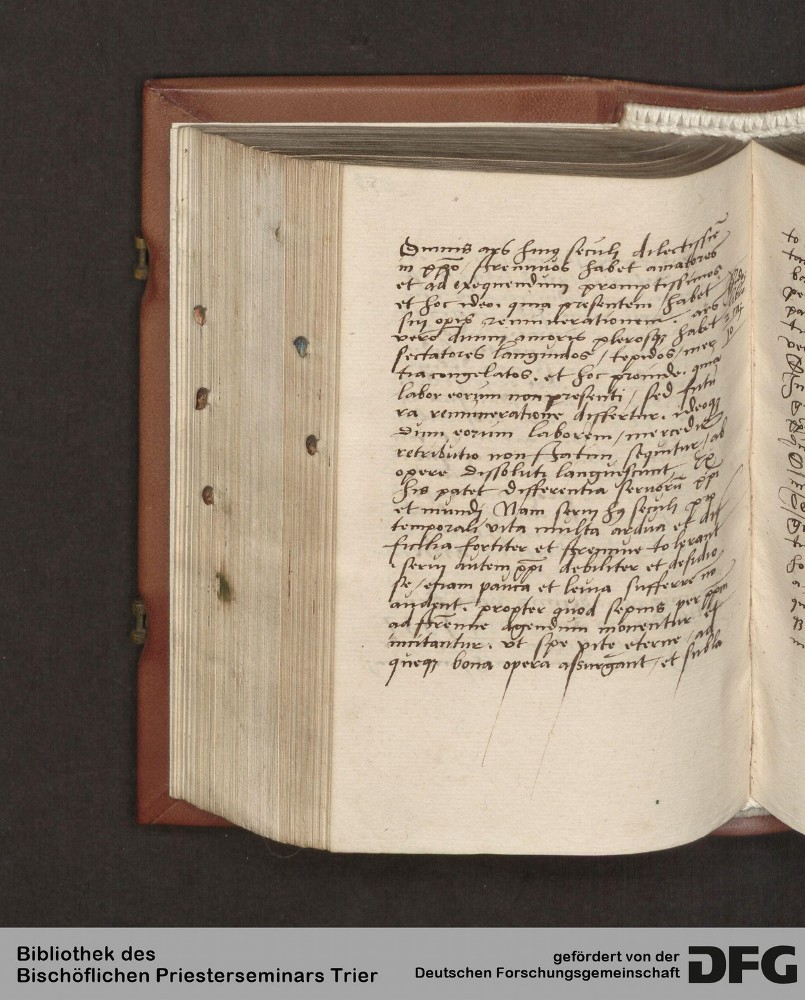 Omnis ars huius seculi dilectissie
in ppo / strennuos habet amatores
et ad exequendum promptissimos
et hoc ideo. quia presentem habet
sui opis remunerationem. ars
vero divini amoris plerosque habet
sectatores languidos / tepidos / iner
tia congelatos. et hoc proinde. quia
labor eorum non presenti / sed futu
ra remuneratione differtur. ideoque
Dum eorum laborem / mercedis
retributio non statim sequitur / ab
opere dissoluti languescunt Ex
his patet differentia servorum xpi
et mundi Nam servi huius seculi pro
temporali vita multa ardua et dif
ficilia fortiter et strennue tolerant
servi autem xpi debiliter et desidio
se / etiam pauca et levia sufferre no
audent. propter quod sepius per
ad strenue agendum monentur et
incitantur. ut spe vite eterne / ad
queque bona opera assurgant / et subla
Bibliothek des
Bischöflichen Priesterseminars Trier
gefördert von der
Deutschen Forschungsgemeinschaft
DFG